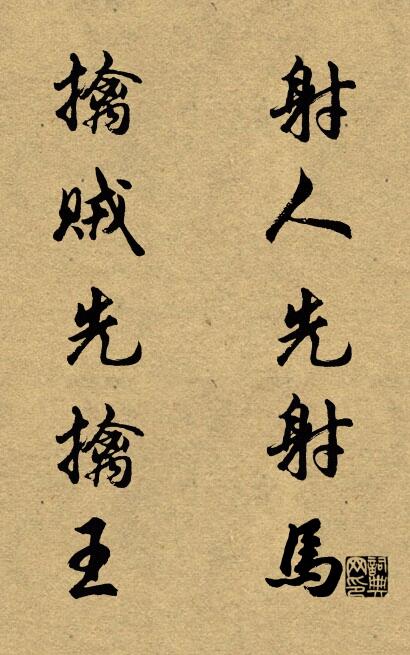 射人先射馬
擒賊先擒王
詞典网印